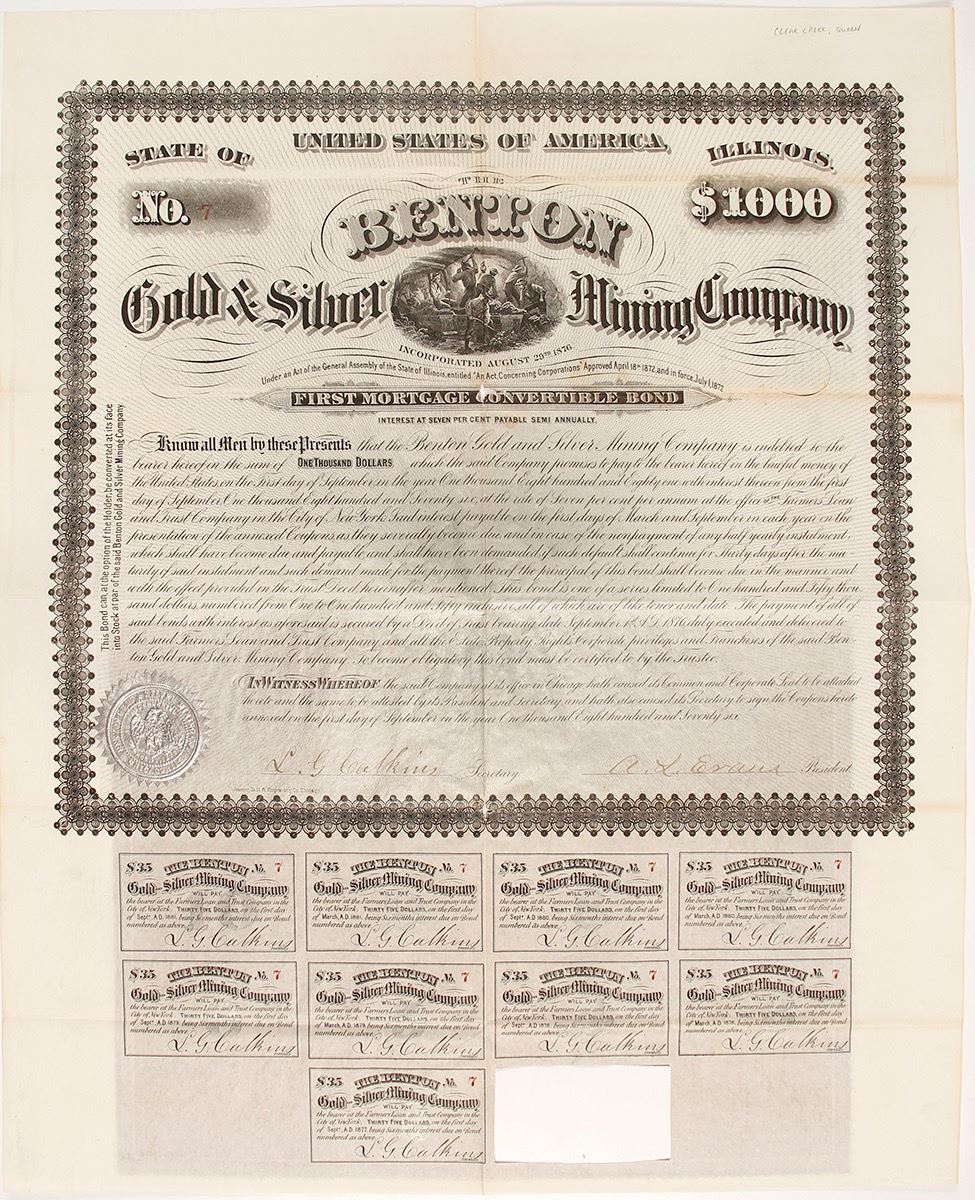 CLEAR CREEK, QUEEN
UNITED STATES OF AMERICA,
STATE OF ILLINOIS.
No. 7 $1000
THE
BENTON
Gold & Silver Mining Company
INCORPORATED AUGUST 29TH 1876
Under an Act of the General Assembly of the State of Illinois, entitled "An Act, Concerning Corporations" Approved April 18th 1872, and in force, July 1, 1872
FIRST MORTGAGE CONVERTIBLE BOND
INTEREST AT SEVEN PER CENT PAYABLE SEMI ANNUALLY.
This Bond can, at the option of the Holder, be converted at its face
into Stock at par of the said Benton Gold and Silver Mining Company
Know all Men by these Presents that the Benton Gold and Silver Mining Company is indebted to the
bearer hereof in the sum of ONE THOUSAND DOLLARS which the said Company promises to pay to the bearer hereof in the lawful money of
the United States, on the First day of September in the year One thousand Eight hundred and Eighty one with interest thereon from the first
day of September One thousand Eight hundred and Seventy six, at the rate of seven per cent per annum at the office of the Farmers Loan
and Trust Company in the City of New York. Said interest payable on the first days of March and September in each year on the
presentation of the annexed Coupons as they severally become due and in case of the nonpayment of any half yearly instalment
which shall have become due and payable and shall have been demanded, if such default shall continue for Thirty days after the ma-
turity of said instalment and such demand made for the payment thereof the principal of this bond shall become due in the manner and
with the effect provided in the Trust Deed hereinafter mentioned. This bond is one of a series limited to One hundred and Fifty thou-
sand dollars, numbered from One to One hundred and Fifty inclusive, all of which are of like tenor and date. The payment of all of
said bonds with interest as aforesaid is secured by a Deed of Trust bearing date September 1st A.D. 1876 duly executed and delivered to
the said Farmers Loan and Trust Company and all the Estate, Property, Rights, Corporate privileges and Franchises of the said Ben-
ton Gold and Silver Mining Company. To become obligatory this bond must be certified to by the Trustee.
IN WITNESS WHEREOF the said Company at its office in Chicago hath caused its Common and Corporate Seal to be attached
hereto and the same to be attested by its President and Secretary, and hath also caused its Secretary to sign the Coupons hereto
annexed on the first day of September in the year One thousand Eight hundred and Seventy six
L. G. Calkins Secretary A. L. Evans President
$35 THE BENTON No. 7
Gold and Silver Mining Company
WILL PAY
the bearer at the Farmers Loan and Trust Company in the
City of New York, THIRTY FIVE DOLLARS, on the first day
of Sept., A.D. 1881, being Six months interest due on Bond
numbered as above.
L. G. Calkins
$35 THE BENTON No. 7
Gold and Silver Mining Company
WILL PAY
the bearer at the Farmers Loan and Trust Company in the
City of New York, THIRTY FIVE DOLLARS, on the first day
of March, A.D. 1881, being Six months interest due on Bond
numbered as above.
L. G. Calkins
$35 THE BENTON No. 7
Gold and Silver Mining Company
WILL PAY
the bearer at the Farmers Loan and Trust Company in the
City of New York, THIRTY FIVE DOLLARS, on the first day
of Sept., A.D. 1880, being Six months interest due on Bond
numbered as above.
L. G. Calkins
$35 THE BENTON No. 7
Gold and Silver Mining Company
WILL PAY
the bearer at the Farmers Loan and Trust Company in the
City of New York, THIRTY FIVE DOLLARS, on the first day
of March, A.D. 1880, being Six months interest due on Bond
numbered as above.
L. G. Calkins
$35 THE BENTON No. 7
Gold and Silver Mining Company
WILL PAY
the bearer at the Farmers Loan and Trust Company in the
City of New York, THIRTY FIVE DOLLARS, on the first day
of Sept., A.D. 1879, being Six months interest due on Bond
numbered as above.
L. G. Calkins
$35 THE BENTON No. 7
Gold and Silver Mining Company
WILL PAY
the bearer at the Farmers Loan and Trust Company in the
City of New York, THIRTY FIVE DOLLARS, on the first day
of March, A.D. 1879, being Six months interest due on Bond
numbered as above.
L. G. Calkins
$35 THE BENTON No. 7
Gold and Silver Mining Company
WILL PAY
the bearer at the Farmers Loan and Trust Company in the
City of New York, THIRTY FIVE DOLLARS, on the first day
of Sept., A.D. 1878, being Six months interest due on Bond
numbered as above.
L. G. Calkins
$35 THE BENTON No. 7
Gold and Silver Mining Company
WILL PAY
the bearer at the Farmers Loan and Trust Company in the
City of New York, THIRTY FIVE DOLLARS, on the first day
of March, A.D. 1878, being Six months interest due on Bond
numbered as above.
L. G. Calkins
$35 THE BENTON No. 7
Gold and Silver Mining Company
WILL PAY
the bearer at the Farmers Loan and Trust Company in the
City of New York, THIRTY FIVE DOLLARS, on the first day
of Sept., A.D. 1877, being Six months interest due on Bond
numbered as above.
L. G. Calkins